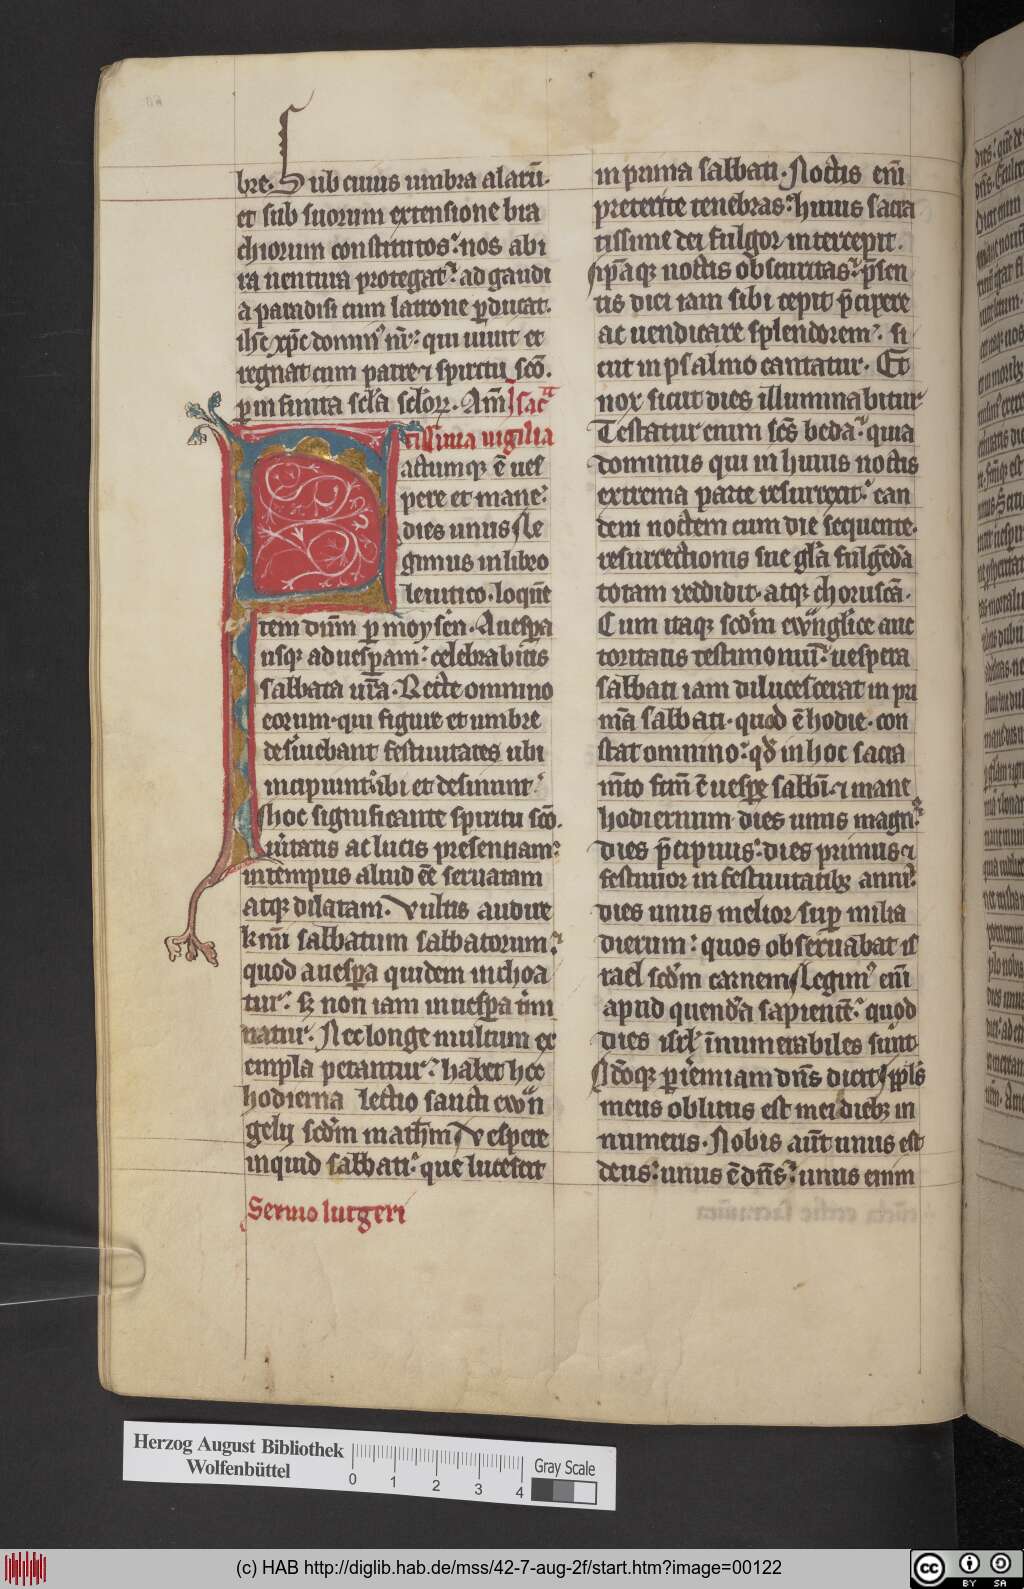 bre. Sub cuius umbra alarū.
et sub suorum extensione bra
chiorum constitutos: nos abi
ra uentura protegat: ad gaudi
a paradisi cum latrone ꝑducat.
ihc xpc domin᷒ nr̄: qui uiuit et
regnat cum patre ⁊ spiritu sc̄o.
ꝑ infinita sc̄la sc̄loꝝ. Am̄ sacͣ
tissima uigilia
Factumqꝫ ē ues
pere et mane:
dies unus. Le
gimus in libro
leuitico. loquē
tem dn̄m ꝑ moysen. A uesꝑa
usqꝫ ad uesꝑam: celebrabitis
sabbata ur̄a. Recte omnino
eorum. qui figure et umbre
deseruiebant festiuitates ubi
incipiunt. ibi et desinunt:
hoc significante spiritu sc̄o.
ueritatis ac lucis presentiam:
in tempus aliud eē seruatam
atqꝫ dilatam. Vultis audire
kmī sabbatum sabbatorum:
quod a uesꝑa quidem inchoa
tur: sꝫ non iam in uesꝑa t̄mi
natur. Nec longe multum ex
empla petantur: habet hoc
hodierna lectio sancti ewan
gelij scdm math̄m Vespere
inquid sabbati: que lucescit
Sermo lutgeri
in prima sabbati. Noctis eni̅
preterite tenebras: huius sacra
tissime dei fulgor intercepit.
ip̄aqꝫ noctis obscuritas: p̄sen
tis diei iam sibi cepit p̄cixere
ac uendicare splendorem: si
cut in psalmo cantatur. Et
nox sicut dies illuminabitur
Testatur enim sc̄s beda: quia
dominus qui in huius noctis
extrema parte resurrexit: ean
dem noctem cum die sequente.
resurrectionis sue gl̄a fulgēda
totam reddidit. atqꝫ choruscā.
Cum itaqꝫ scdm ewanglice auc
toritatis testimoniū: uespera
sabbati iam dilucescerat in pri
ma sabbati. quod ē hodie. con
stat omnino: qd̄ in hoc sacra
m̄to fc̄m ē uesꝑe sabb̄i. ⁊ mane
hodiernum dies unus magn᷒:
dies p̄cipuus: dies primus ⁊
festiuior in festiuitatibꝫ anni:
dies unus melior suꝑ milia
dierum: quos obseruabat is
rael scdm carnem. Legim᷒ eni̅
apud quenda sapientē: quod
dies isrl īnumerabiles sunt.
Ncoqꝫ ꝑ ieremiam dn̄s dicit ppl̄s
meus oblitus est mei diebꝫ in
numeris. Nobis aūt unus est
deus: unus ē dn̄s: unus enim
Herzog August Bibliothek
Wolfenbüttel
0 1 2 3 4
Gray Scale
(c) HAB http://diglib.hab.de/mss/42-7-aug-2f/start.htm?image=00122
cc BY SA